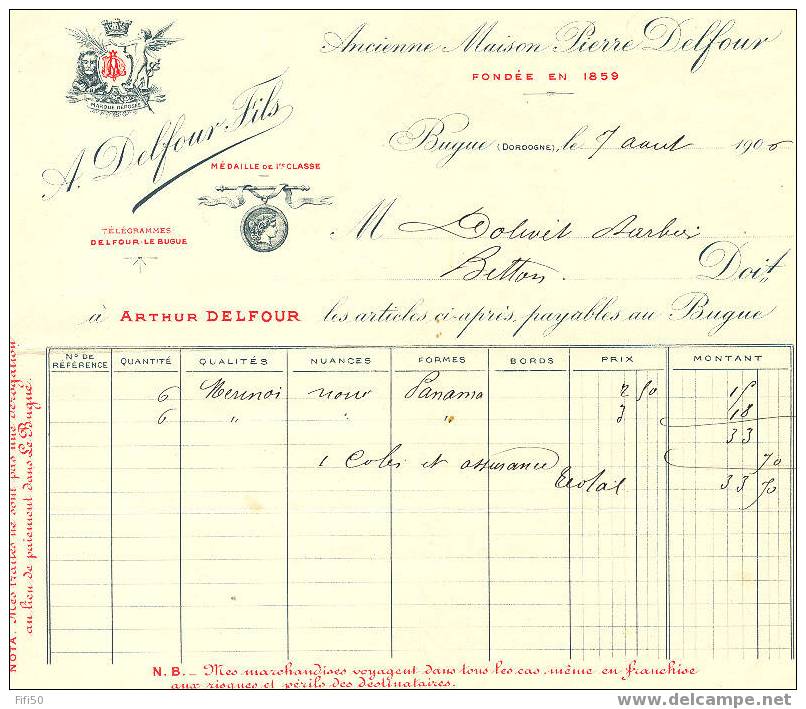 Ancienne Maison Pierre Delfour
FONDÉE EN 1859
MARQUE DÉPOSÉE
A. Delfour Fils
MÉDAILLE DE 1re CLASSE
TÉLÉGRAMMES
DELFOUR-LE BUGUE
Bugue (DORDOGNE), le 7 aout 1906
M Dolivet Barbier
Betton. Doit
à ARTHUR DELFOUR les articles ci-après, payables au Bugue
No DE RÉFÉRENCE QUANTITÉ QUALITÉS NUANCES FORMES BORDS PRIX MONTANT
6 Merinos noir Panama 2 50 15
6 " " " 3 18
33
1 Colis et assurance 70
Total 33 70
NOTA. Mes traites ne sont pas une dérogation
au lieu de paiement dans Le Bugue.
N.B. _ Mes marchandises voyagent dans tous les cas, même en franchise
aux risques et périls des destinataires.
Fifi50
www.delcampe.net